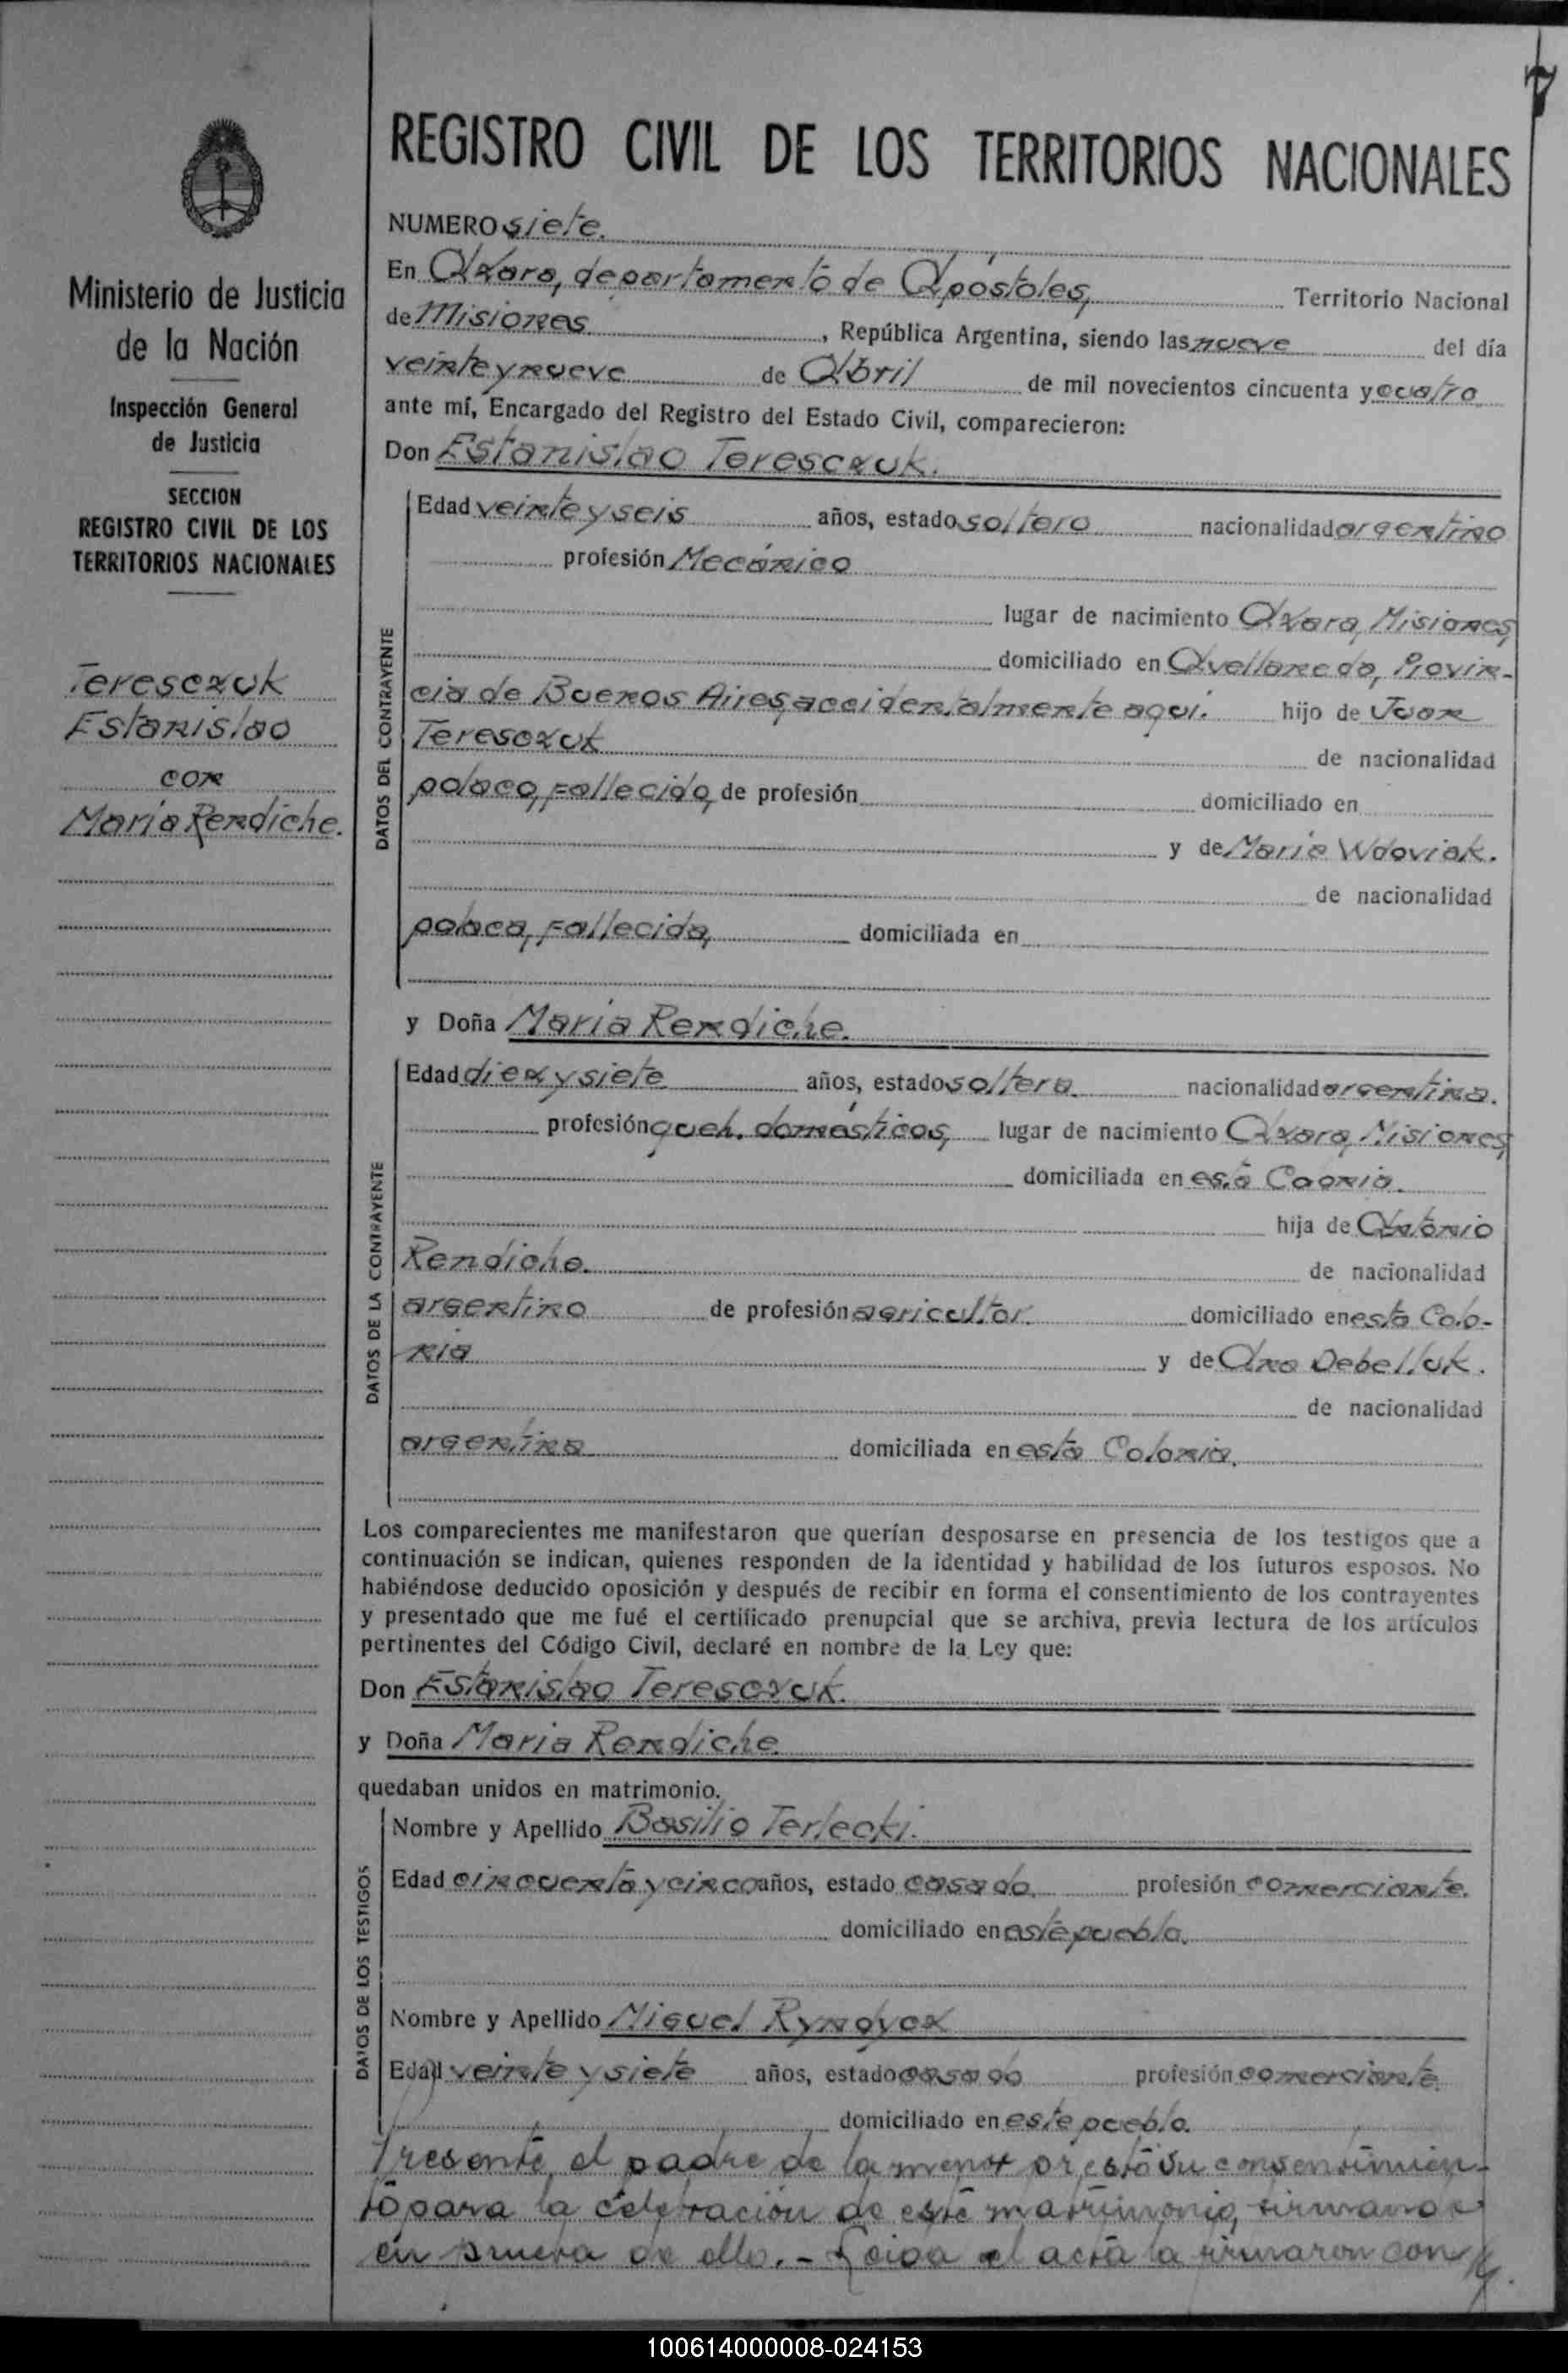 7
REGISTRO CIVIL DE LOS TERRITORIOS NACIONALES
Ministerio de Justicia
de la Nación
Inspección General
de Justicia
SECCION
REGISTRO CIVIL DE LOS
TERRITORIOS NACIONALES
Teresczuk
Estanislao
con
Maria Rendiche.
NUMERO siete.
En Azara, departamento de Apóstoles, Territorio Nacional
de Misiones, República Argentina, siendo las nueve del día
veinte y nueve de Abril de mil novecientos cincuenta y cuatro
ante mí, Encargado del Registro del Estado Civil, comparecieron:
Don Estanislao Teresczuk.
DATOS DEL CONTRAYENTE
Edad veinte y seis años, estado soltero nacionalidad argentino
profesión Mecánico
lugar de nacimiento Azara, Misiones,
domiciliado en Avellaneda, Provin-
cia de Buenos Aires, accidentalmente aquí. hijo de Juan
Teresczuk de nacionalidad
polaco, fallecido, de profesión domiciliado en
y de Maria Wdoviak.
de nacionalidad
polaca, fallecida, domiciliada en
y Doña Maria Rendiche.
DATOS DE LA CONTRAYENTE
Edad diez y siete años, estado soltera. nacionalidad argentina.
profesión queh. domésticos, lugar de nacimiento Azara, Misiones,
domiciliada en esta Coonia.
hija de Antonio
Rendiche. de nacionalidad
argentino de profesión agricultor. domiciliado en esta Colo-
nia y de Ana Debelluk.
de nacionalidad
argentina domiciliada en esta Colonia.
Los comparecientes me manifestaron que querían desposarse en presencia de los testigos que a
continuación se indican, quienes responden de la identidad y habilidad de los futuros esposos. No
habiéndose deducido oposición y después de recibir en forma el consentimiento de los contrayentes
y presentado que me fué el certificado prenupcial que se archiva, previa lectura de los artículos
pertinentes del Código Civil, declaré en nombre de la Ley que:
Don Estanislao Teresczuk.
y Doña Maria Rendiche.
quedaban unidos en matrimonio.
DATOS DE LOS TESTIGOS
Nombre y Apellido Basilio Terlecki.
Edad cincuenta y cinco años, estado casado. profesión comerciante.
domiciliado en este pueblo.
Nombre y Apellido Miguel Ryndycz
Edad veinte y siete años, estado casado profesión comerciante.
domiciliado en este pueblo.
Presente el padre de la menor prestó su consentimien-
to para la celebración de este matrimonio, firmando
en prueba de ello. - Leida el acta la firmaron con
100614000008-024153